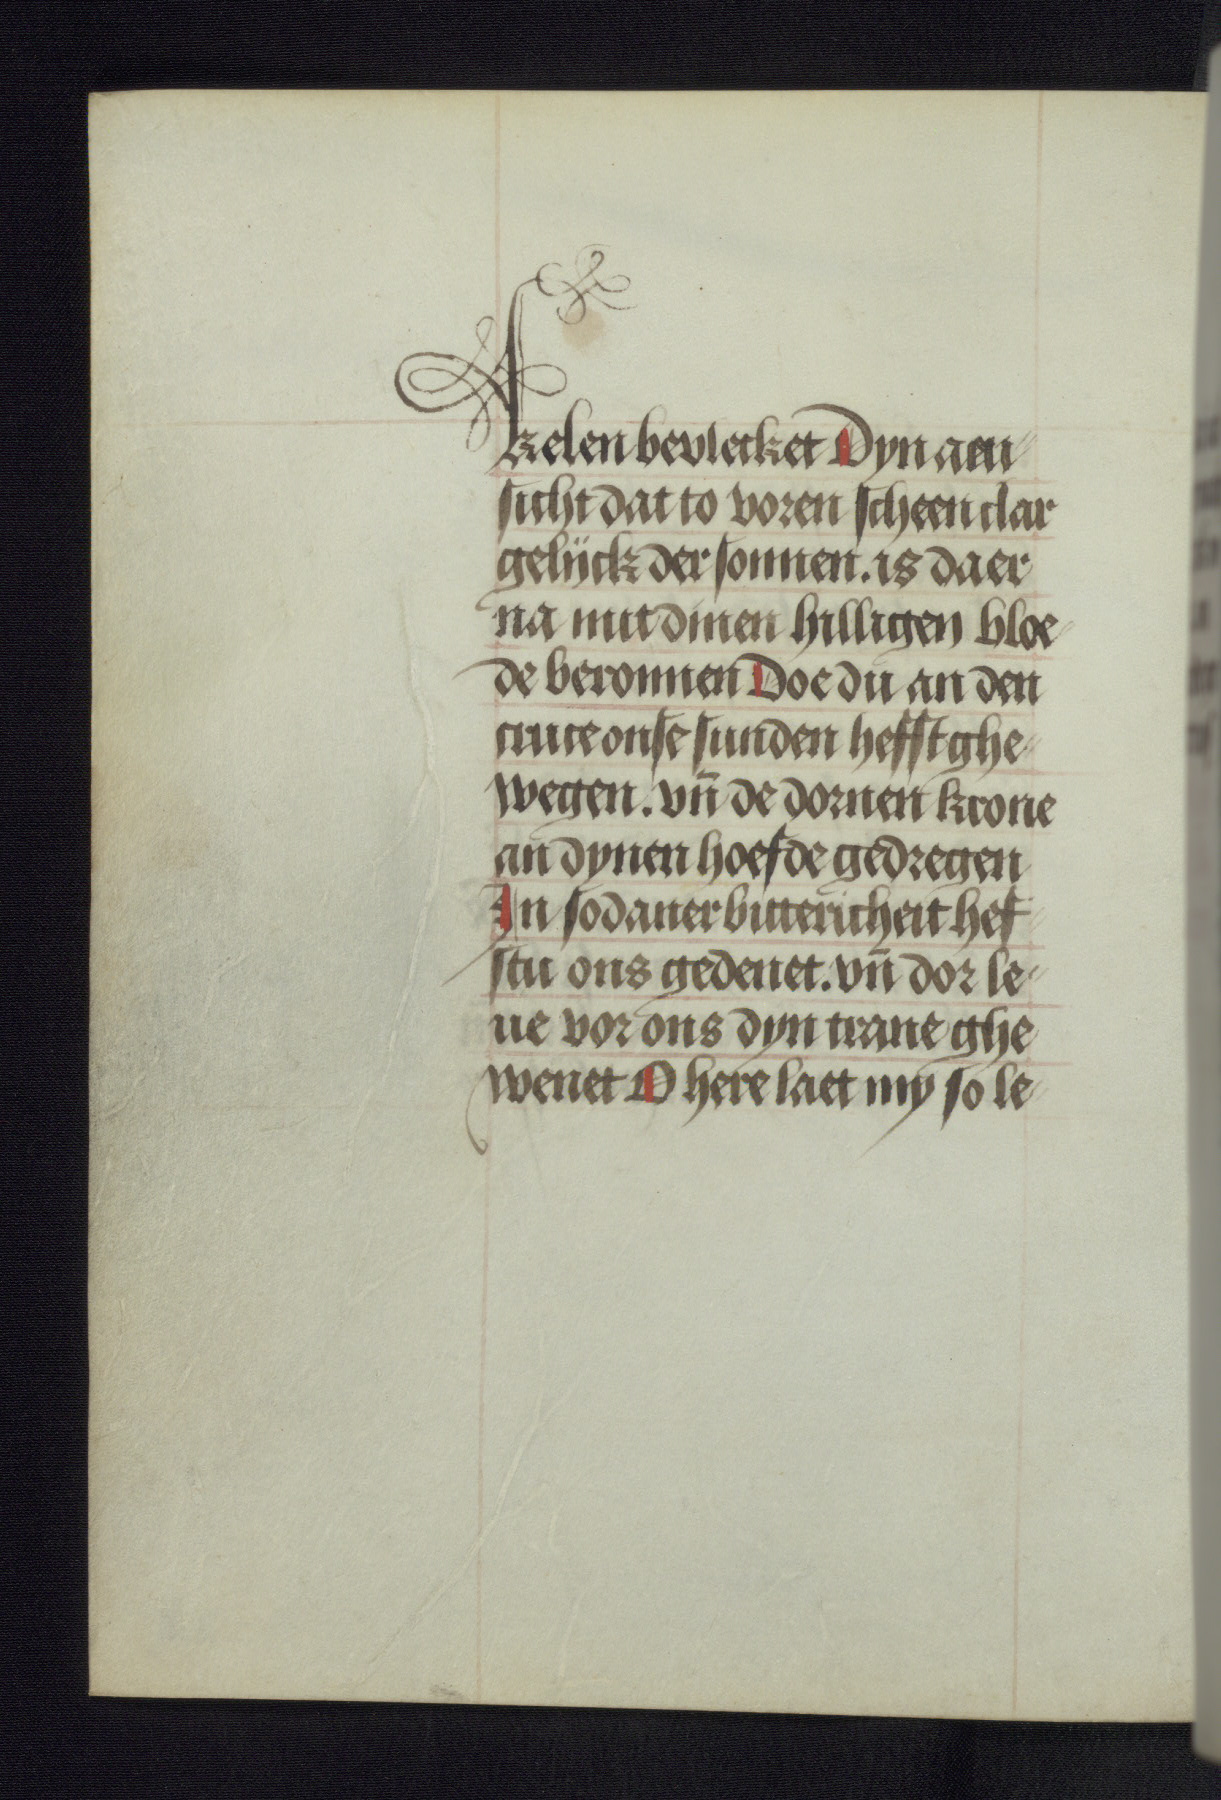 kelen bevlecket Dyn aen
sicht dat to voren scheen clar
gelÿck der sonnen. is daer
na mit dinen hilligen bloe
de beronnen Doe du an den
cruce onse sunden heffst ghe
wegen. vn̄ de dornen krone
an dynen hoefde gedregen
In sodaner bittericheit hef
stu ons gedenet. vn̄ dor le
ue vor ons dyn trane ghe
wenet O here laet my so le